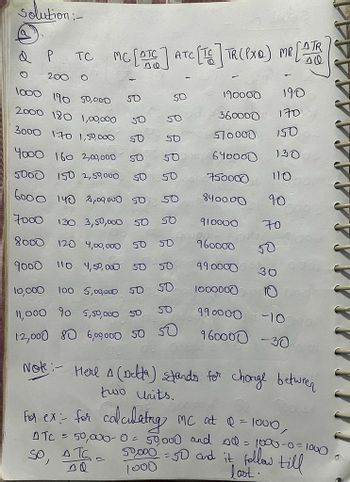 Solution:-
(a)
Q P TC MC [ΔTC/ΔQ] ATC [TC/Q] TR (PXQ) MR [ΔTR/ΔQ]
0 200 0 - - - -
1000 190 50,000 50 50 190000 190
2000 180 1,00,000 50 50 360000 170
3000 170 1,50,000 50 50 510000 150
4000 160 2,00,000 50 50 640000 130
5000 150 2,50,000 50 50 750000 110
6000 140 3,00,000 50 50 840000 90
7000 130 3,50,000 50 50 910000 70
8000 120 4,00,000 50 50 960000 50
9000 110 4,50,000 50 50 990000 30
10,000 100 5,00,000 50 50 1000000 10
11,000 90 5,50,000 50 50 990000 -10
12,000 80 6,00,000 50 50 960000 -30
Note:- Here Δ (Delta) stands for change between
two units.
For ex:- for calculating MC at Q = 1000,
ΔTC = 50,000-0 = 50000 and ΔQ = 1000-0 = 1000
So, ΔTC/ΔQ = 50,000/1000 = 50 and it follow till
last.